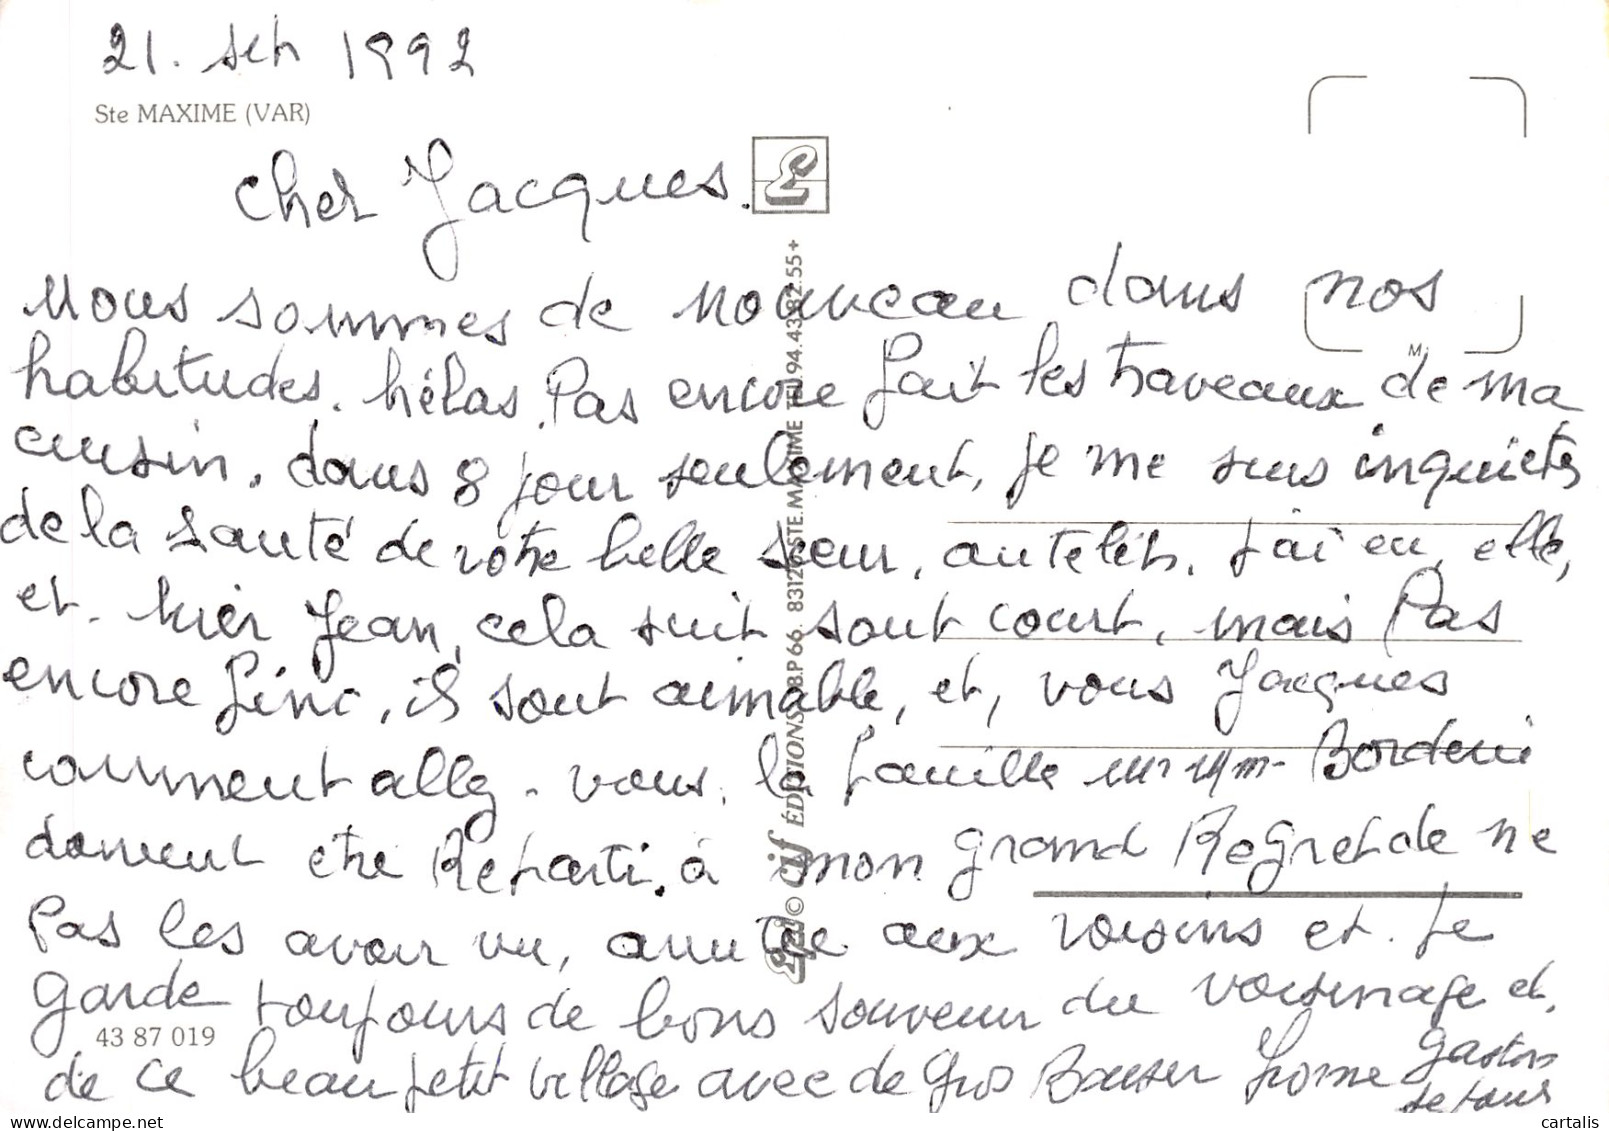 21. sep 1992
Ste MAXIME (VAR)
Cher Jacques.
Nous sommes de nouveau dans nos
habitudes. hélas. Pas encore fait les traveaux de ma
cuisin. dans 8 jour seulement, je me suis inquietés
de la santé de votre belle sœur, au téléph. j'ai eu, elle,
et. hier Jean, cela suit sont court, mais Pas
encore fini, ils sont aimable, et, vous Jacques
comment allez-vous, la famille Mr Mm-
doivent etre Reparti, à mon grand Regret de ne
Pas les avoir vu, amitée aux voisins et. je
garde toujours de bons souvenir du voisinage et.
de ce beau petit village avec de Gros Baiser Gaston
43 87 019
M.
Edi © Cif ÉDITIONS B.P 66. 83120 STE.MAXIME TEL 94.43.82.55+
cartalis
delcampe.net